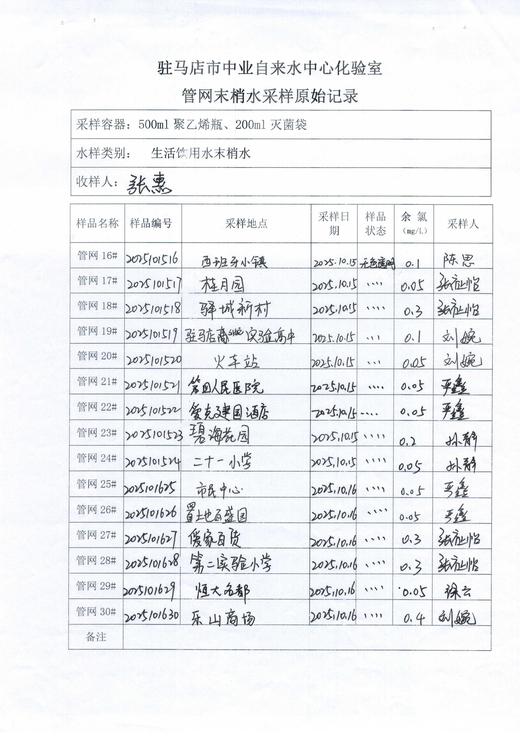 驻马店市中业自来水中心化验室
管网末梢水采样原始记录
采样容器：500ml 聚乙烯瓶、200ml 灭菌袋
水样类别： 生活饮用水末梢水
收样人：张惠
样品名称 样品编号 采样地点 采样日期 样品状态 余氯（mg/L） 采样人
管网 16# 2025101516 西班牙小镇 2025.10.15 无色透明 0.1 陈思
管网 17# 2025101517 桂月园 2025.10.15 〃〃 0.05
管网 18# 2025101518 驿城新村 2025.10.15 〃〃 0.3
管网 19# 2025101519 驻马店高级实验高中 2025.10.15 〃〃 0.1 刘婉
管网 20# 2025101520 火车站 2025.10.15 〃〃 0.05 刘婉
管网 21# 2025101521 第四人民医院 2025.10.15 〃〃 0.05 严鑫
管网 22# 2025101522 爱克建国酒店 2025.10.15 〃〃 0.05 严鑫
管网 23# 2025101523 碧海花园 2025.10.15 〃〃 0.2 孙静
管网 24# 2025101524 二十一小学 2025.10.15 〃〃 0.05 孙静
管网 25# 2025101625 市民中心 2025.10.16 〃〃 0.05 严鑫
管网 26# 2025101626 置地百盛园 2025.10.16 〃〃 0.05 严鑫
管网 27# 2025101627 爱家百货 2025.10.16 〃〃 0.3
管网 28# 2025101628 第二实验小学 2025.10.16 〃〃 0.3
管网 29# 2025101629 恒大名都 2025.10.16 〃〃 0.05 徐云
管网 30# 2025101630 乐山商场 2025.10.16 〃〃 0.4 刘婉
备注